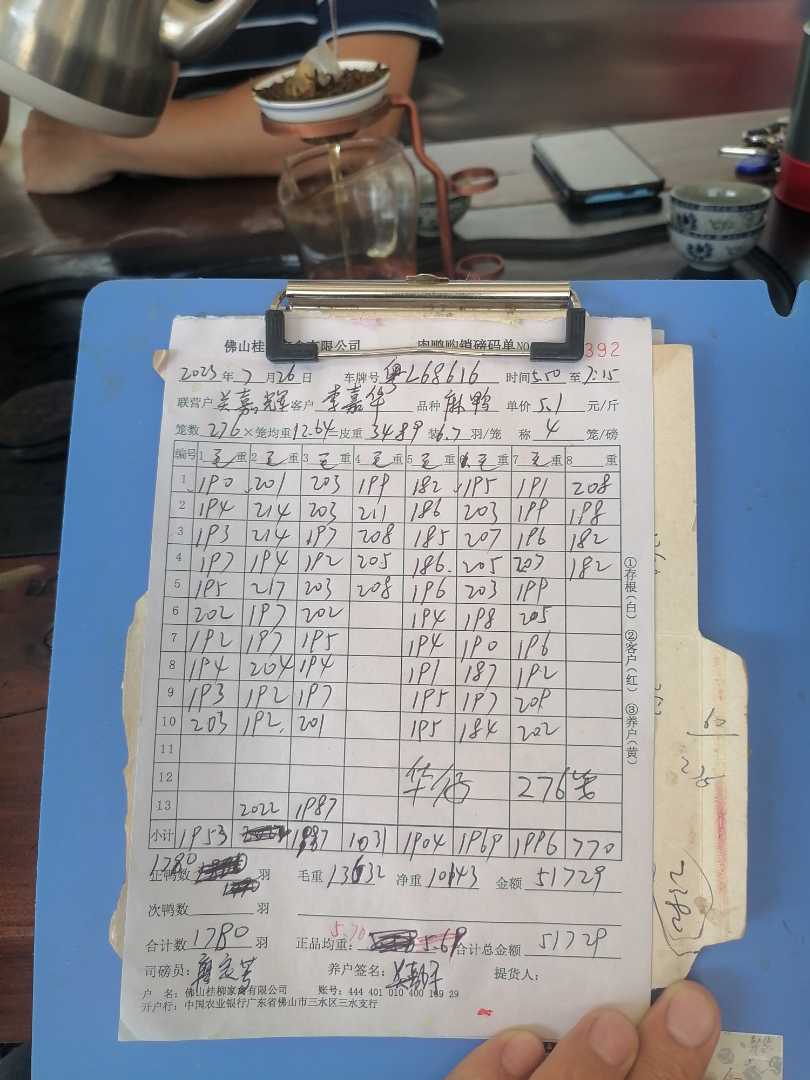 佛山桂 有限公司 肉鸭购销磅码单NO 392
2023年7月26日 车牌号 粤L68616 时间5.50至7:15
联营户吴嘉辉客户李嘉华 品种麻鸭 单价5.1元/斤
笼数276×笼均重12.64=皮重3489 装6.7羽/笼 称4笼/磅
编号 1毛重 2毛重 3毛重 4毛重 5毛重 6毛重 7毛重 8 重
1 190 201 203 199 182 195 191 208
2 194 214 203 211 186 203 199 198
3 193 214 197 208 185 207 196 182
4 197 194 192 205 186 205 207 182
5 195 217 203 208 196 203 199
6 202 197 202 194 198 205
7 192 197 195 194 190 196
8 194 204 194 191 187 192
9 193 192 197 195 197 209
10 203 192 201 195 184 202
11
12 276笼
13 2022 1987
小计 1953 1987 1031 1904 1969 1996 770
1780
正鸭数 羽 毛重13632 净重10143 金额51729
次鸭数 羽
5.70
合计数1780羽 正品均重: 5.69 合计总金额51729
司磅员: 养户签名: 提货人:
户 名: 佛山桂柳家禽有限公司 账号: 444 401 010 400 169 29
开户行: 中国农业银行广东省佛山市三水区三水支行
①存根(白) ②客户(红) ③养户(黄)
60
235
2380